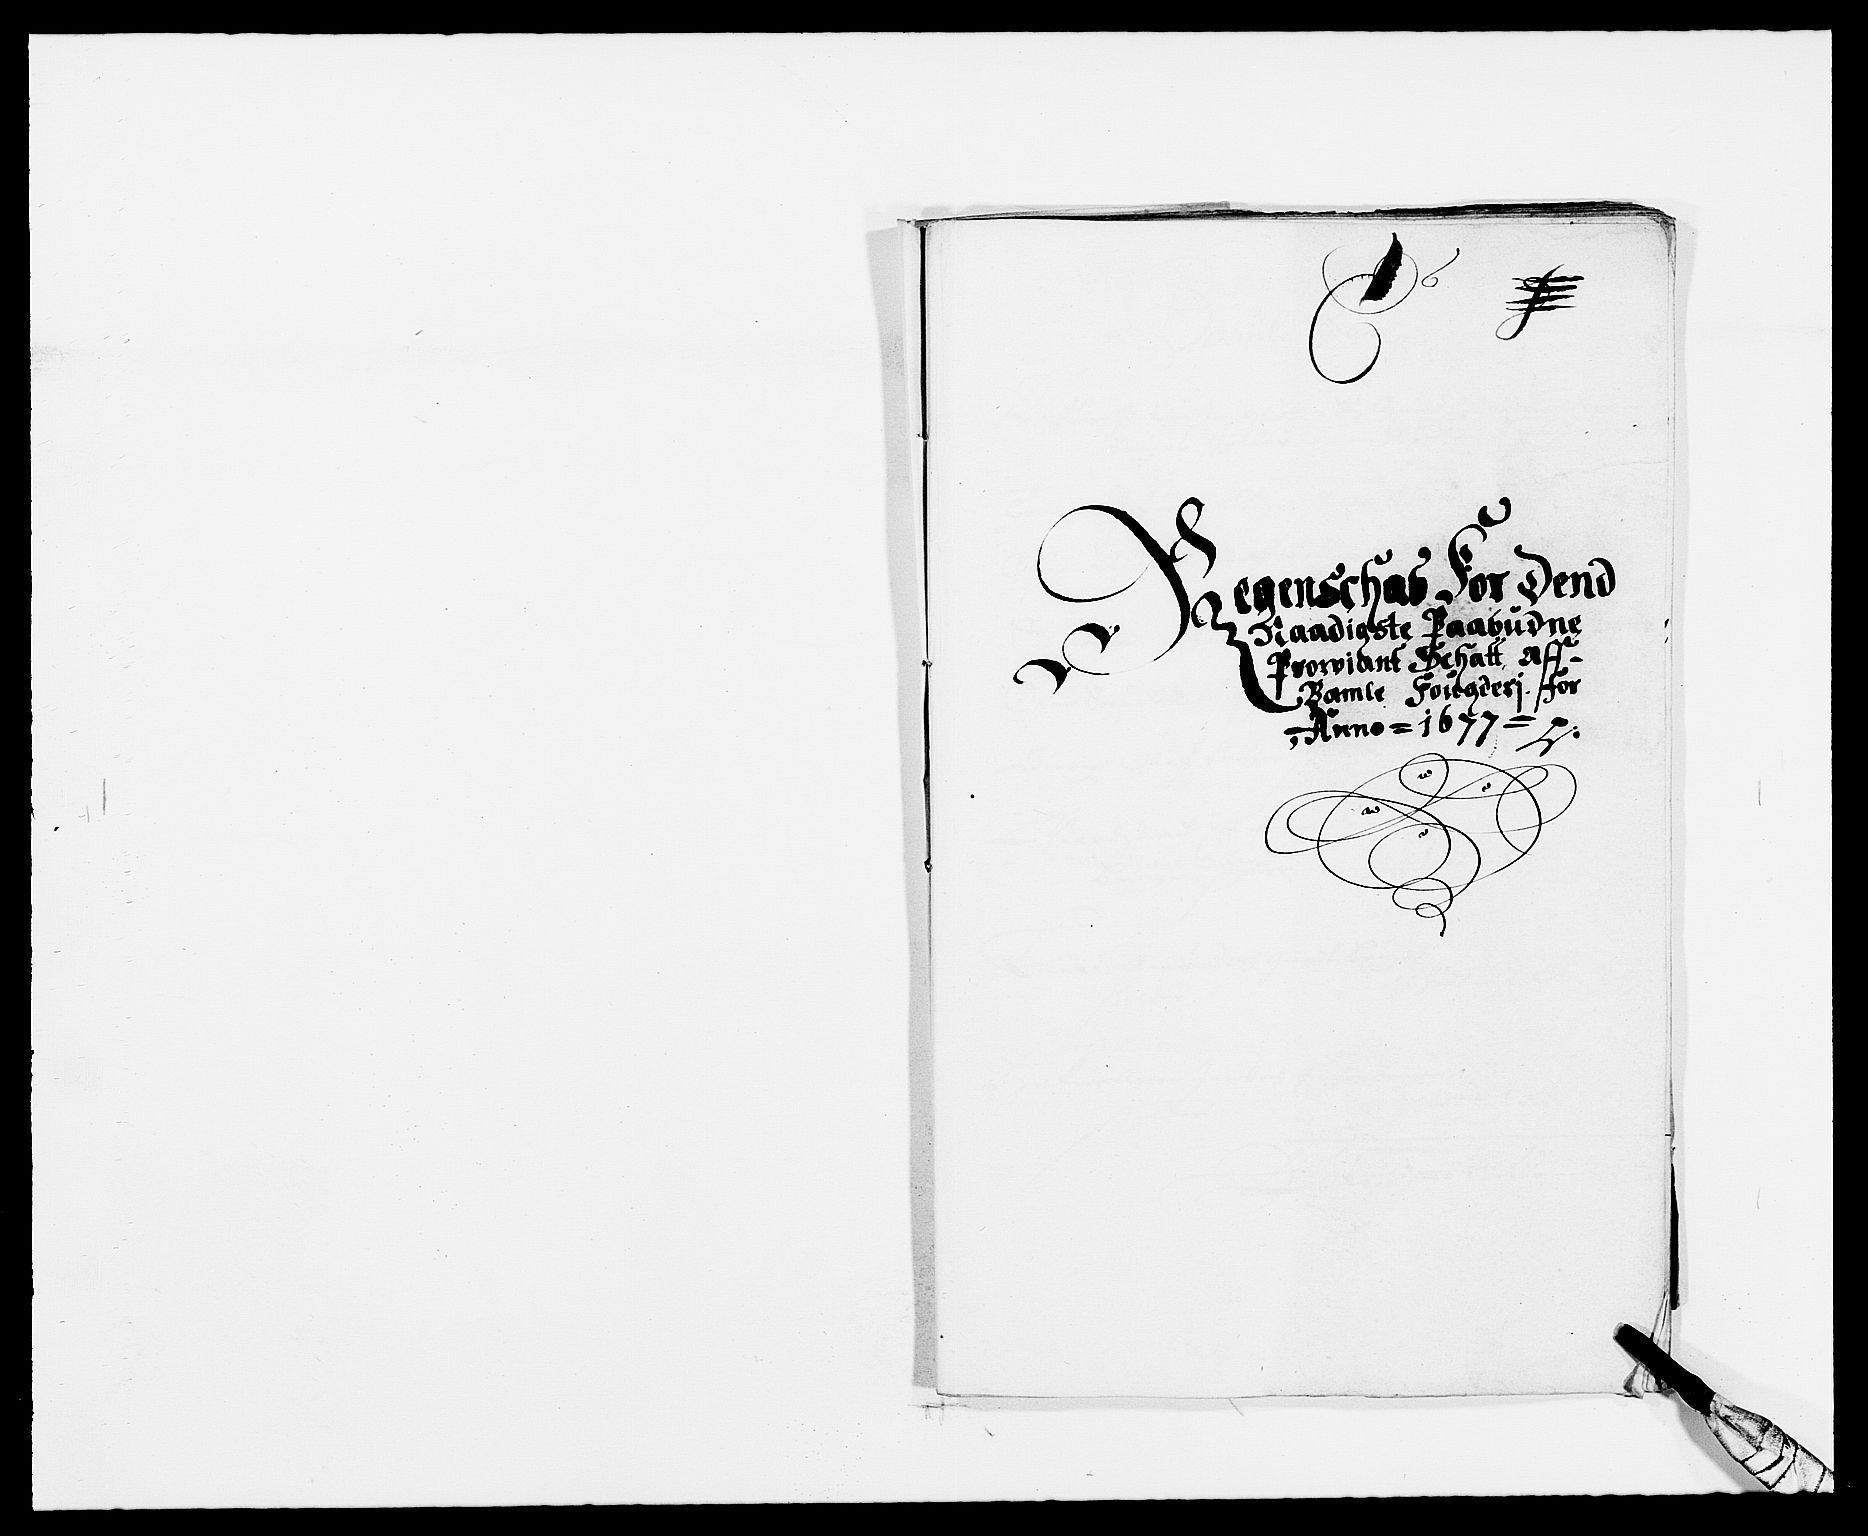 Regenschab For Dend
Naadigste Paabudne
Prowiant Schatt aff-
Bamle Fougderj for
Anno = 1677 =